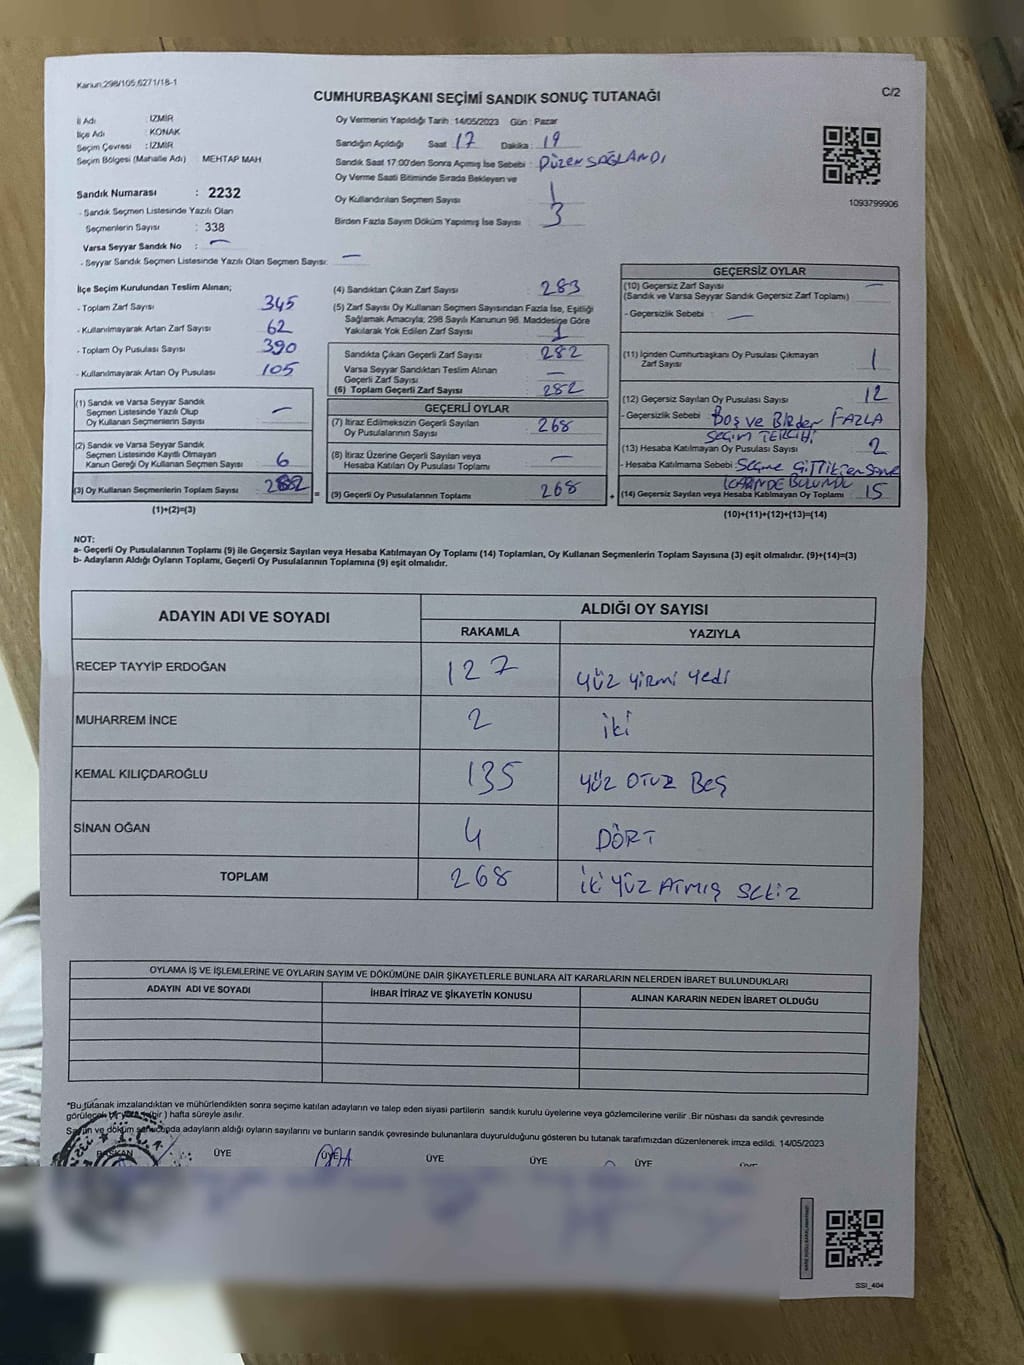 Kanun:298/105,6271/18-1
C/2
CUMHURBAŞKANI SEÇİMİ SANDIK SONUÇ TUTANAĞI
İl Adı : İZMİR
İlçe Adı : KONAK
Seçim Çevresi : İZMİR
Seçim Bölgesi (Mahalle Adı) MEHTAP MAH
Sandık Numarası : 2232
- Sandık Seçmen Listesinde Yazılı Olan
Seçmenlerin Sayısı : 338
Varsa Seyyar Sandık No : —
- Seyyar Sandık Seçmen Listesinde Yazılı Olan Seçmen Sayısı: —
Oy Vermenin Yapıldığı Tarih : 14/05/2023 Gün : Pazar
Sandığın Açıldığı Saat 17 Dakika : 19
Sandık Saat 17:00'den Sonra Açımış İse Sebebi : DÜZEN SAĞLANDI
Oy Verme Saati Bitiminde Sırada Bekleyen ve
Oy Kullandırılan Seçmen Sayısı : 1
Birden Fazla Sayım Döküm Yapılmış İse Sayısı : 3
1093799906
İlçe Seçim Kurulundan Teslim Alınan;
- Toplam Zarf Sayısı 345
- Kullanılmayarak Artan Zarf Sayısı 62
- Toplam Oy Pusulası Sayısı 390
- Kullanılmayarak Artan Oy Pusulası 105
(1) Sandık ve Varsa Seyyar Sandık
Seçmen Listesinde Yazılı Olup
Oy Kullanan Seçmenlerin Sayısı —
(2) Sandık ve Varsa Seyyar Sandık
Seçmen Listesinde Kayıtlı Olmayan
Kanun Gereği Oy Kullanan Seçmen Sayısı 6
(3) Oy Kullanan Seçmenlerin Toplam Sayısı =
(1)+(2)=(3)
(4) Sandıktan Çıkan Zarf Sayısı 283
(5) Zarf Sayısı Oy Kullanan Seçmen Sayısından Fazla İse, Eşitliği
Sağlamak Amacıyla; 298 Sayılı Kanunun 98. Maddesine Göre
Yakılarak Yok Edilen Zarf Sayısı 1
Sandıkta Çıkan Geçerli Zarf Sayısı 282
Varsa Seyyar Sandıktan Teslim Alınan
Geçerli Zarf Sayısı —
(6) Toplam Geçerli Zarf Sayısı 282
GEÇERLİ OYLAR
(7) İtiraz Edilmeksizin Geçerli Sayılan
Oy Pusulalarının Sayısı 268
(8) İtiraz Üzerine Geçerli Sayılan veya
Hesaba Katılan Oy Pusulası Toplamı —
(9) Geçerli Oy Pusulalarının Toplamı 268 +
GEÇERSİZ OYLAR
(10) Geçersiz Zarf Sayısı —
(Sandık ve Varsa Seyyar Sandık Geçersiz Zarf Toplamı)
- Geçersizlik Sebebi : —
(11) İçinden Cumhurbaşkanı Oy Pusulası Çıkmayan
Zarf Sayısı 1
(12) Geçersiz Sayılan Oy Pusulası Sayısı 12
- Geçersizlik Sebebi : BOŞ VE BİRDEN FAZLA
SEÇİM TERCİHİ
(13) Hesaba Katılmayan Oy Pusulası Sayısı 2
- Hesaba Katılmama Sebebi SEÇMEN GİTTİKTEN SONRA
İÇERİNDE BULUNDU
(14) Geçersiz Sayılan veya Hesaba Katılmayan Oy Toplamı 15
(10)+(11)+(12)+(13)=(14)
NOT:
a- Geçerli Oy Pusulalarının Toplamı (9) ile Geçersiz Sayılan veya Hesaba Katılmayan Oy Toplamı (14) Toplamları, Oy Kullanan Seçmenlerin Toplam Sayısına (3) eşit olmalıdır. (9)+(14)=(3)
b- Adayların Aldığı Oyların Toplamı, Geçerli Oy Pusulalarının Toplamına (9) eşit olmalıdır.
ADAYIN ADI VE SOYADI
ALDIĞI OY SAYISI
RAKAMLA YAZIYLA
RECEP TAYYİP ERDOĞAN 127 YÜZ YİRMİ YEDİ
MUHARREM İNCE 2 İKİ
KEMAL KILIÇDAROĞLU 135 YÜZ OTUZ BEŞ
SİNAN OĞAN 4 DÖRT
TOPLAM 268 İKİ YÜZ ATMIŞ SEKİZ
OYLAMA İŞ VE İŞLEMLERİNE VE OYLARIN SAYIM VE DÖKÜMÜNE DAİR ŞİKAYETLERLE BUNLARA AİT KARARLARIN NELERDEN İBARET BULUNDUKLARI
ADAYIN ADI VE SOYADI İHBAR İTİRAZ VE ŞİKAYETİN KONUSU ALINAN KARARIN NEDEN İBARET OLDUĞU
*Bu tutanak imzalandıktan ve mühürlendikten sonra seçime katılan adayların ve talep eden siyasi partilerin sandık kurulu üyelerine veya gözlemcilerine verilir .Bir nüshası da sandık çevresinde
görülecek bir yere (bir ) hafta süreyle asılır.
Sayım ve döküm sonucunda adayların aldığı oyların sayılarını ve bunların sandık çevresinde bulunanlara duyurulduğunu gösteren bu tutanak tarafımızdan düzenlenerek imza edildi. 14/05/2023
BAŞKAN ÜYE ÜYE ÜYE ÜYE ÜYE
SSI_404